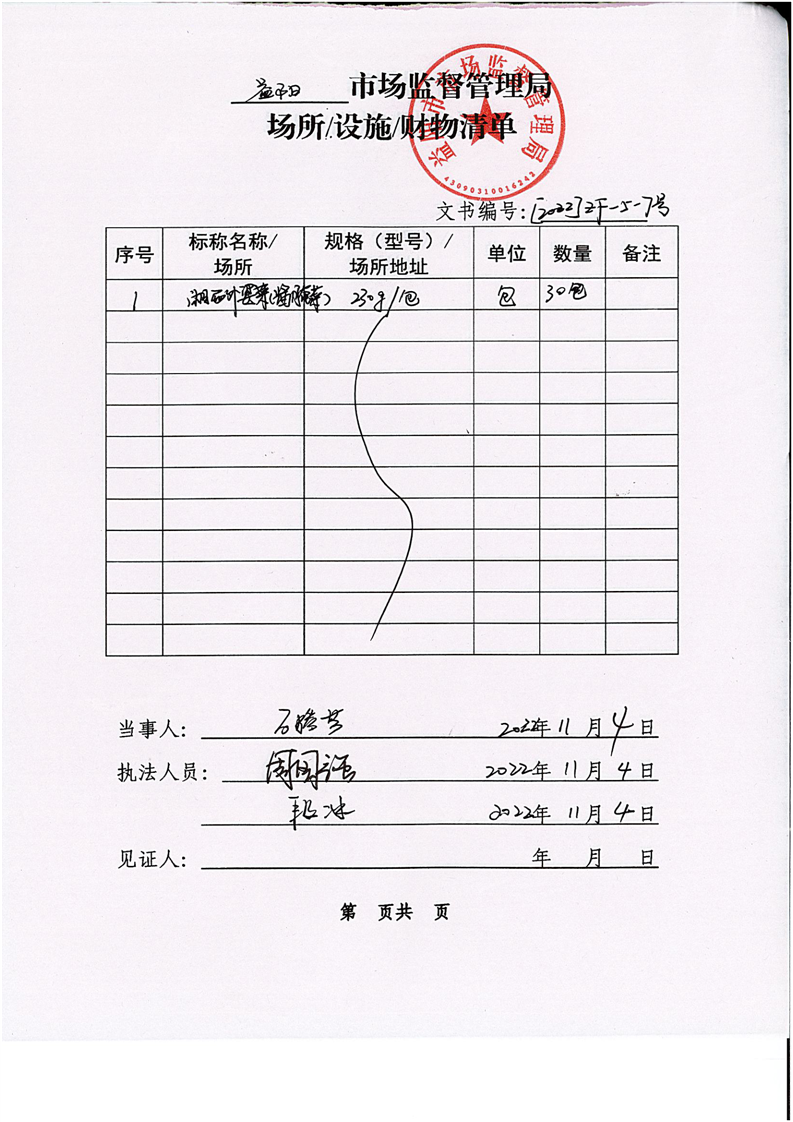 益阳 市场监督管理局
场所/设施/财物清单
益阳市市场监督管理局
43090310016242
文书编号:[2022]ZF-5-7号
序号 标称名称/场所 规格（型号）/场所地址 单位 数量 备注
1 湘西外婆菜 230g/包 包 30包
当事人: 2022年11月4日
执法人员: 周国强 2022年11月4日
2022年11月4日
见证人: 年 月 日
第 页共 页